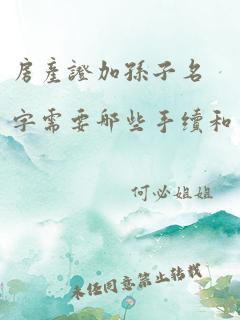 房產證加孫子名
字需要哪些手續和
何必姐姐
未经同意禁止转载